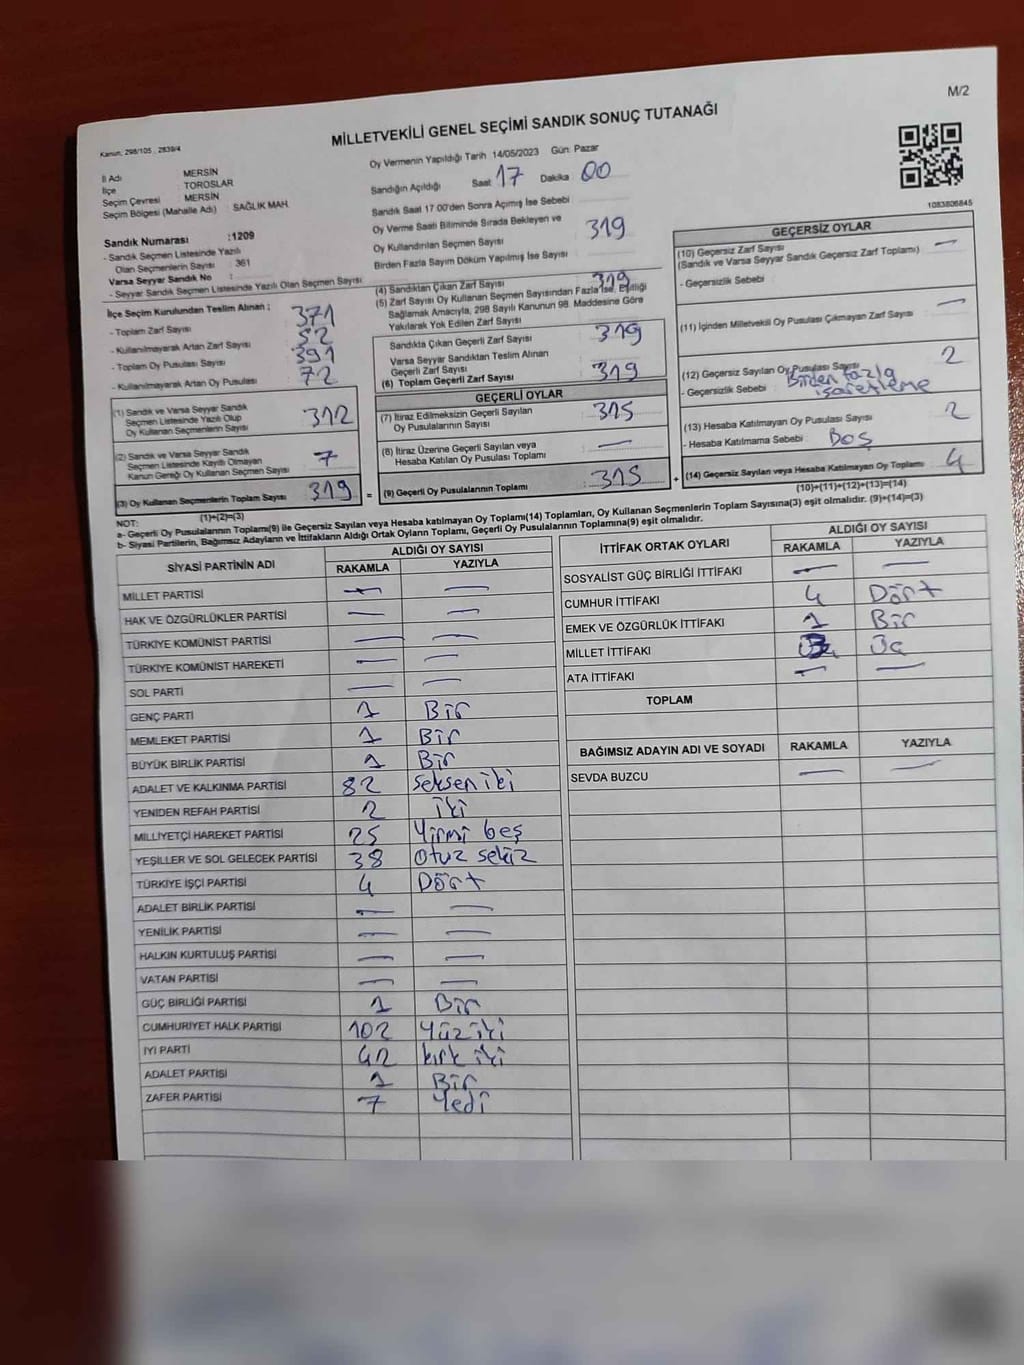 M/2
MİLLETVEKİLİ GENEL SEÇİMİ SANDIK SONUÇ TUTANAĞI
Kanun, 298/105 , 2839/4
İl Adı : MERSİN
İlçe : TOROSLAR
Seçim Çevresi : MERSİN
Seçim Bölgesi (Mahalle Adı) : SAĞLIK MAH.
Sandık Numarası :1209
- Sandık Seçmen Listesinde Yazılı
Olan Seçmenlerin Sayısı : 361
Varsa Seyyar Sandık No :
- Seyyar Sandık Seçmen Listesinde Yazılı Olan Seçmen Sayısı :
Oy Vermenin Yapıldığı Tarih 14/05/2023 Gün: Pazar
Sandığın Açıldığı Saat 17 Dakika 00
Sandık Saat 17.00'den Sonra Açımış İse Sebebi
Oy Verme Saati Bitiminde Sırada Bekleyen ve
Oy Kullandırılan Seçmen Sayısı : 319
Birden Fazla Sayım Döküm Yapılmış İse Sayısı :
1083806845
İlçe Seçim Kurulundan Teslim Alınan ;
- Toplam Zarf Sayısı : 371
- Kullanılmayarak Artan Zarf Sayısı : 52
- Toplam Oy Pusulası Sayısı : 391
- Kullanılmayarak Artan Oy Pusulası : 72
(1) Sandık ve Varsa Seyyar Sandık
Seçmen Listesinde Yazılı Olup
Oy Kullanan Seçmenlerin Sayısı : 312
(2) Sandık ve Varsa Seyyar Sandık
Seçmen Listesinde Kayıtlı Olmayan
Kanun Gereği Oy Kullanan Seçmen Sayısı : 7
(3) Oy Kullanan Seçmenlerin Toplam Sayısı : 319 =
(1)+(2)=(3)
(4) Sandıktan Çıkan Zarf Sayısı : 319
(5) Zarf Sayısı Oy Kullanan Seçmen Sayısından Fazla İse, Eşitliği
Sağlamak Amacıyla, 298 Sayılı Kanunun 98. Maddesine Göre
Yakılarak Yok Edilen Zarf Sayısı :
Sandıkta Çıkan Geçerli Zarf Sayısı : 319
Varsa Seyyar Sandıktan Teslim Alınan
Geçerli Zarf Sayısı :
(6) Toplam Geçerli Zarf Sayısı : 319
GEÇERLİ OYLAR
(7) İtiraz Edilmeksizin Geçerli Sayılan
Oy Pusulalarının Sayısı : 315
(8) İtiraz Üzerine Geçerli Sayılan veya
Hesaba Katılan Oy Pusulası Toplamı : —
(9) Geçerli Oy Pusulalarının Toplamı : 315 +
GEÇERSİZ OYLAR
(10) Geçersiz Zarf Sayısı : —
(Sandık ve Varsa Seyyar Sandık Geçersiz Zarf Toplamı)
- Geçersizlik Sebebi :
(11) İçinden Milletvekili Oy Pusulası Çıkmayan Zarf Sayısı : —
(12) Geçersiz Sayılan Oy Pusulası Sayısı : 2
- Geçersizlik Sebebi : Birden fazla
işaretleme
(13) Hesaba Katılmayan Oy Pusulası Sayısı : 2
- Hesaba Katılmama Sebebi : Boş
(14) Geçersiz Sayılan veya Hesaba Katılmayan Oy Toplamı : 4
(10)+(11)+(12)+(13)=(14)
NOT:
a- Geçerli Oy Pusulalarının Toplamı(9) ile Geçersiz Sayılan veya Hesaba katılmayan Oy Toplamı(14) Toplamları, Oy Kullanan Seçmenlerin Toplam Sayısına(3) eşit olmalıdır. (9)+(14)=(3)
b- Siyasi Partilerin, Bağımsız Adayların ve İttifakların Aldığı Ortak Oyların Toplamı, Geçerli Oy Pusulalarının Toplamına(9) eşit olmalıdır.
SİYASİ PARTİNİN ADI ALDIĞI OY SAYISI
RAKAMLA YAZIYLA
MİLLET PARTİSİ — —
HAK VE ÖZGÜRLÜKLER PARTİSİ — —
TÜRKİYE KOMÜNİST PARTİSİ — —
TÜRKİYE KOMÜNİST HAREKETİ — —
SOL PARTİ — —
GENÇ PARTİ 1 Bir
MEMLEKET PARTİSİ 1 Bir
BÜYÜK BİRLİK PARTİSİ 1 Bir
ADALET VE KALKINMA PARTİSİ 82 seksen iki
YENİDEN REFAH PARTİSİ 2 iki
MİLLİYETÇİ HAREKET PARTİSİ 25 Yirmi beş
YEŞİLLER VE SOL GELECEK PARTİSİ 38 Otuz sekiz
TÜRKİYE İŞÇİ PARTİSİ 4 Dört
ADALET BİRLİK PARTİSİ — —
YENİLİK PARTİSİ — —
HALKIN KURTULUŞ PARTİSİ — —
VATAN PARTİSİ — —
GÜÇ BİRLİĞİ PARTİSİ 1 Bir
CUMHURİYET HALK PARTİSİ 102 Yüz iki
İYİ PARTİ 42 kırk iki
ADALET PARTİSİ 1 Bir
ZAFER PARTİSİ 7 Yedi
İTTİFAK ORTAK OYLARI ALDIĞI OY SAYISI
RAKAMLA YAZIYLA
SOSYALİST GÜÇ BİRLİĞİ İTTİFAKI — —
CUMHUR İTTİFAKI 4 Dört
EMEK VE ÖZGÜRLÜK İTTİFAKI 1 Bir
MİLLET İTTİFAKI
ATA İTTİFAKI — —
TOPLAM
BAĞIMSIZ ADAYIN ADI VE SOYADI RAKAMLA YAZIYLA
SEVDA BUZCU — —